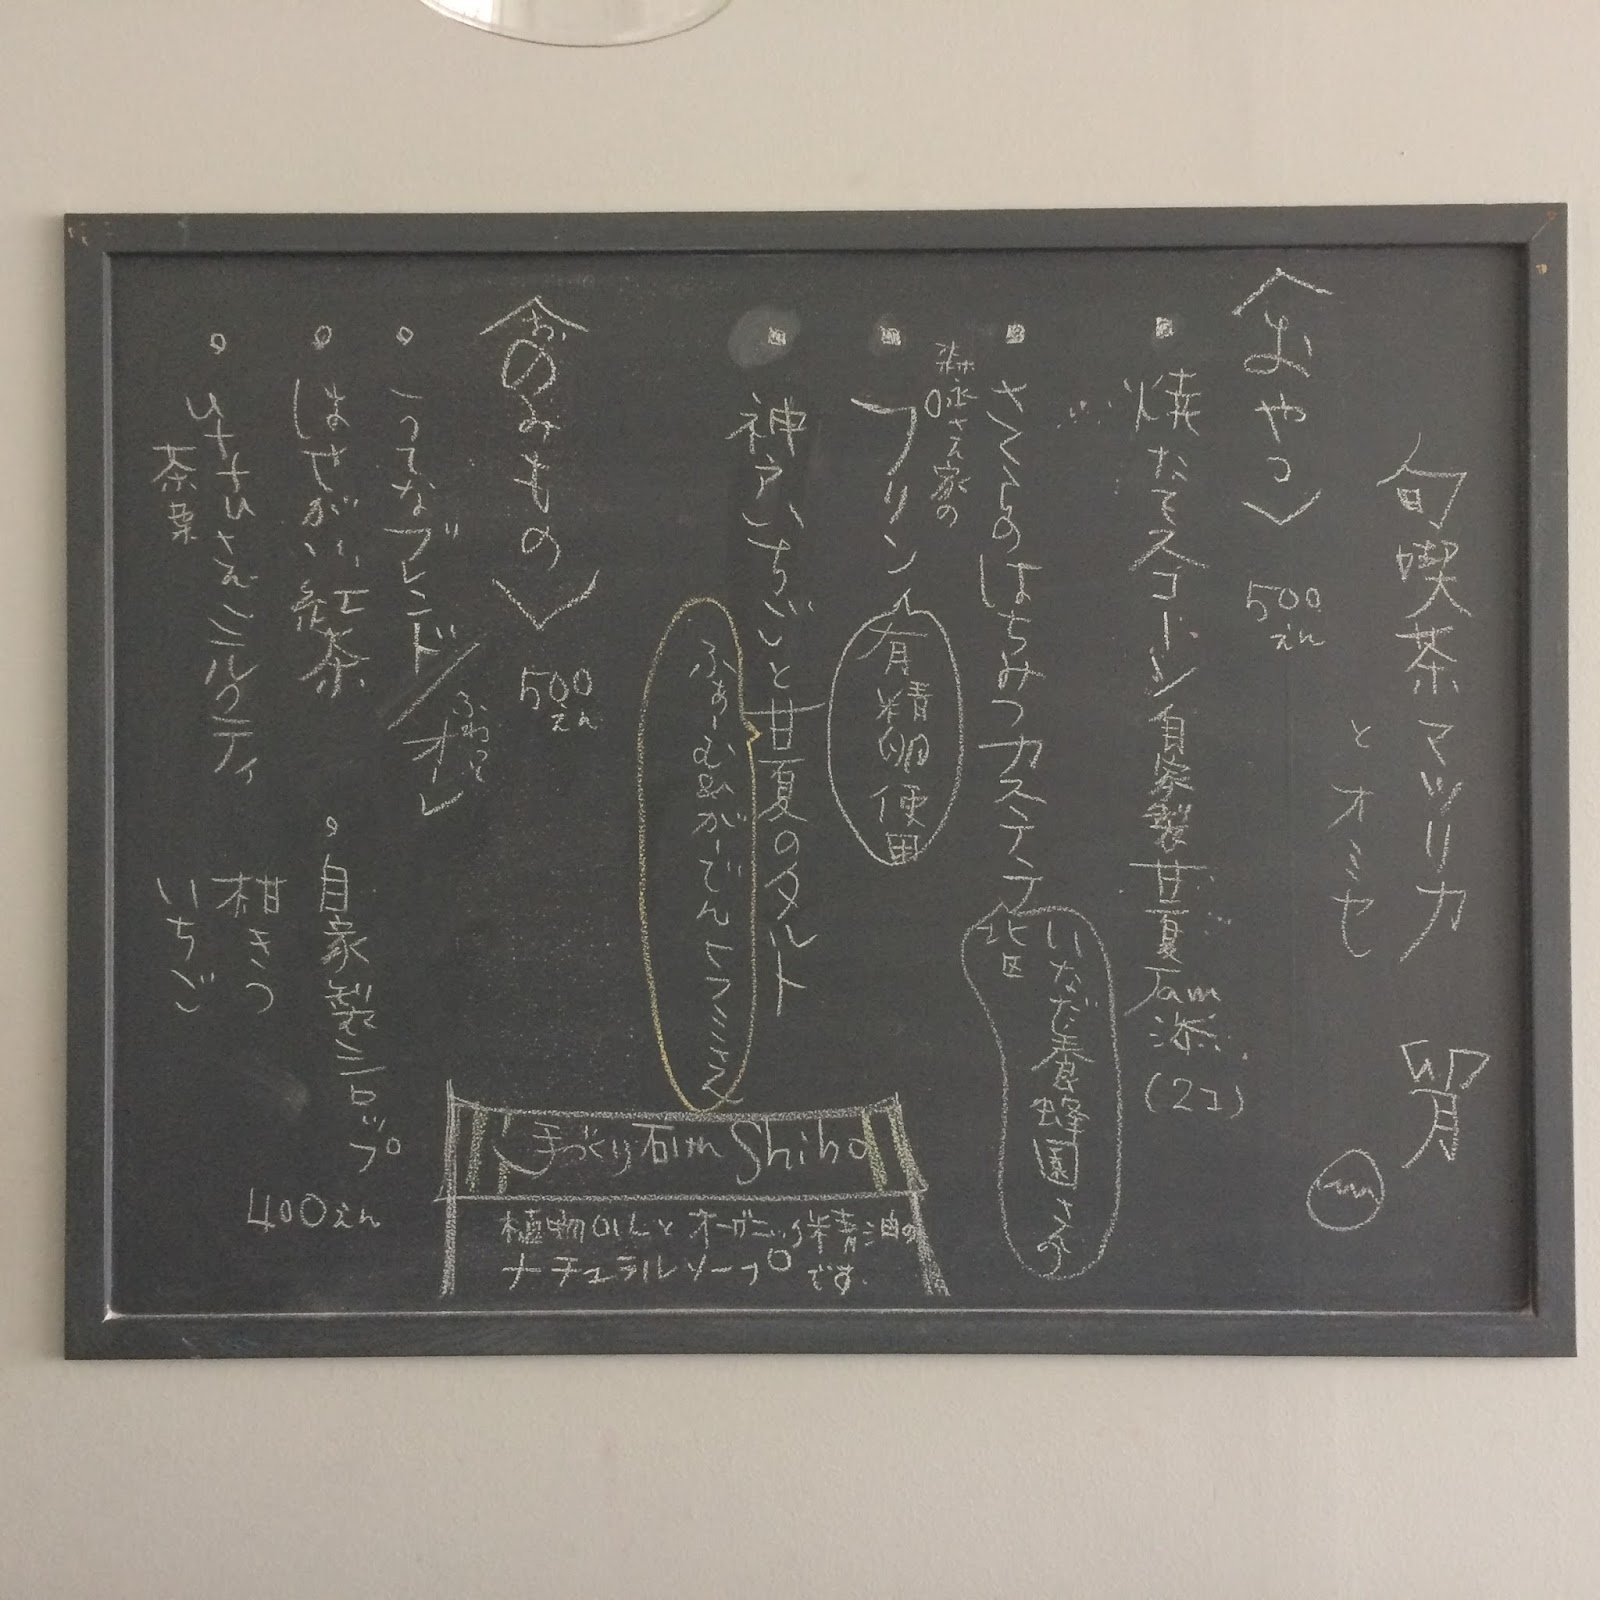 旬喫茶マツリカ
とオミセ
卵月
〈おやつ〉 500えん
焼たてスコーン自家製甘夏Jam添(2コ)
さくらのはちみつカステラ
北区
いなだ養蜂園さんの
プリン
有精卵使用
神戸いちごと甘夏のタルト
〈おのみもの〉 500えん
ブレンド/ふわっとオーレ
はせがい紅茶
ミルクティ
茶葉
自家製シロップ
柑きつ
いちご
400えん
手づくり石けん Shiho
植物OILとオーガニック精油の
ナチュラルソープです。